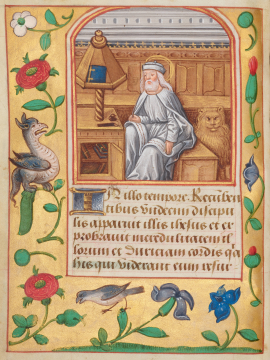 IN illo tempore Recu̅ben
tibus vndecim discipu
lis apparuit illis ihesus et ex
probrauit incredulitatem il
lorum et duriciam cordis q̅a
his qui viderant eum resur